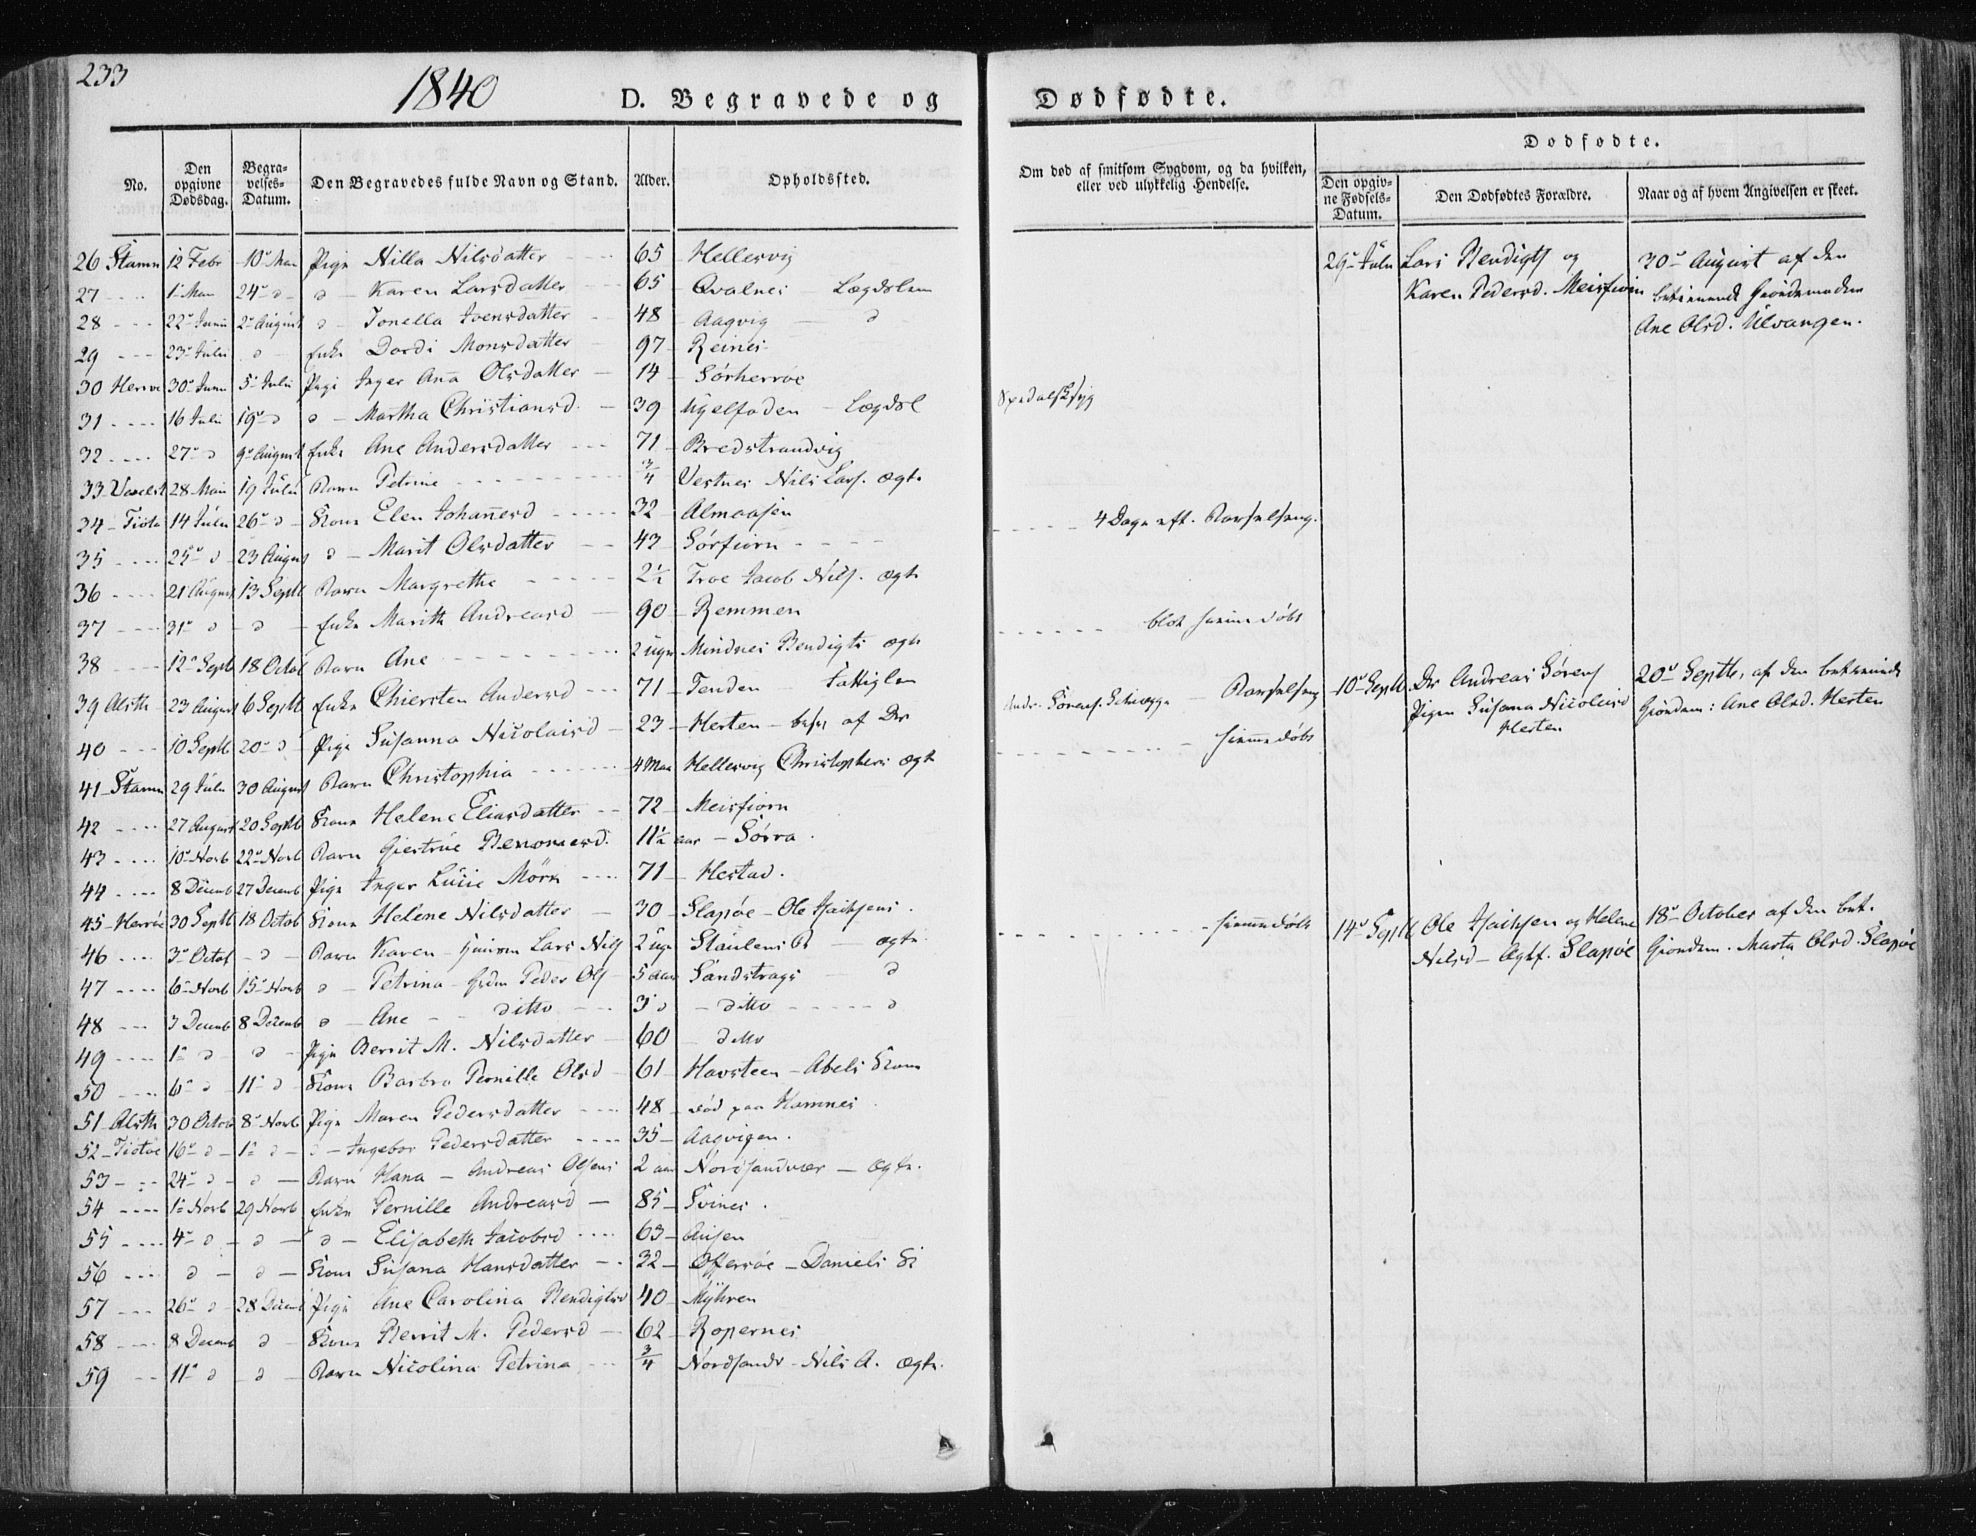 233
1840
D. Begravede og Dødfødte.
No. | Den opgivne Dødsdag. | Begravelses-Datum. | Den Begravedes fulde Navn og Stand. | Alder. | Opholdssted. | Om død af smitsom Sygdom, og da hvilken, eller ved ulykkelig Hendelse. | Dødfødte. Den opgivne Fødsels-Datum. | Den Dødfødtes Forældre. | Naar og af hvem Angivelsen er skeet.
26 Stamn | 12 Febr | 10 Mai | Pige Nilla Nilsdatter | 65 | Hellesvig | 29 Juli | Lars Bendigts og | 30 August af den
27 | 1 Mai | 24 d | d Karen Larsdatter | 65 | Qvalnes Lægdslem | Karen Pedersd. Meisfiorn | betienende Giordemoder
28 | 22 Juni | 2 August | d Jonella Joensdatter | 48 | Aagvig d | Ane Olsd. Ulvangen.
29 | 23 Juli | d | Enke Dordi Monsdatter | 97 | Reines
30 Herrøe | 30 Juni | 5 Juli | Pige Inger Anna Olsdatter | 14 | Sørherrøe
31 | 16 Juli | 19 d | d Martha Christiansd. | 39 | Ugelfaden Lægdsl | Spedalsksyg
32 | 27 d | 9 August | Enke Ane Andersdatter | 71 | Bredstrandvig
33 | 28 Mai | 19 Juli | Barn Petrine | 3/4 | Vestnes Nils Lars. ægte
34 Tiøtø | 14 Juli | 26 d | Kone Elen Johannesd | 32 | Almaasen | 4 Dage eft. Barselseng.
35 | 25 d | 23 August | d Marit Olsdatter | 43 | Sørfiorn
36 | 21 August | 13 Septb | Barn Margrethe | 2½ | Troe Jacob Nils. ægte
37 | 31 d | d | Enke Marith Andreasd | 90 | Remmen
38 | 12 Septb | 18 Octob | Barn Ane | 2 uger | Mindnes Bendigts ægte | blot hiemmedøbt
39 Alsth | 23 August | 6 Septb | Enke Chiersten Andersd | 71 | Tenden Fattiglem
40 | 10 Septb | 20 d | Pige Susanna Nicolaisd | 23 | Herten af | Andr. Sørens. Barselseng | 10 Septb | Andreas Sørens | 20 Septb. af den betienende
Pigen Susana Nicolaisd | Giordem: Ane Olsd. Herten
Herten
41 Stamn | 29 Juli | 30 August | Barn Christophia | 4 Maa | Hellesvig Christophers ægte | hiemmedøbt
42 | 27 August | 20 Septb | Kone Helene Eliasdatter | 72 | Meisfiorn
43 | 10 Novb | 22 Novb | Barn Giertrue | 11½ aar | Sørra.
44 | 8 Decemb | 27 Decemb | Pige Inger Lucie Mørk | 71 | Hestad.
45 Herrøe | 30 Septb | 18 Octob | Kone Helene Nilsdatter | 30 | Slapøe Ole Isaksens. | 14 Septb | Ole Isaksen og Helene | 18 October af den bet.
46 | 3 Octob | d | Barn Karen Lars Nils | 2 uger | ægte. | hiemmedøbt | Nilsd ægtf. Slapøe | Giordem. Marta Olsd. Slapøe
47 | 6 Novb | 15 Novb | d Petrina Peder Ols | 5 aar | Sandstrage d
48 | 3 Decemb | 8 Decemb | d Ane ditto | 3 d | ditto d
49 | 1 d | d | Pige Berrit M. Nilsdatter | 60 | ditto
50 | 6 d | 11 d | Kone Barbro Pernille Olsd | 61 | Havsteen Abels Kone
51 Alsth | 30 Octob | 8 Novb | Pige Maren Pedersdatter | 48 | død paa Hamnes
52 Tiøtøe | 16 d | 1 d | d Ingebor Pedersdatter | 35 | Aagvigen.
53 | 24 d | d | Barn Hana Andreas Olsens | 2 aar | Nordsandvær ægte.
54 | 1 Novb | 29 Novb | Enke Pernille Andreasd | 85 | Svines.
55 | 4 d | d | d Elisabeth Jacobsd | 63 | Ausen
56 | d | d | Kone Susana Hansdatter | 32 | Offersøe Daniels
57 | 26 d | 28 Decemb | Pige Ane Carolina Bendigtsd | 40 | Myhren
58 | 8 Decemb | d | Kone Berrit M. Pedersd | 62 | Ropernes
59 | 11 d | d | Barn Nicolina Petrina | 3/4 | Nordsandv Nils A. ægte.